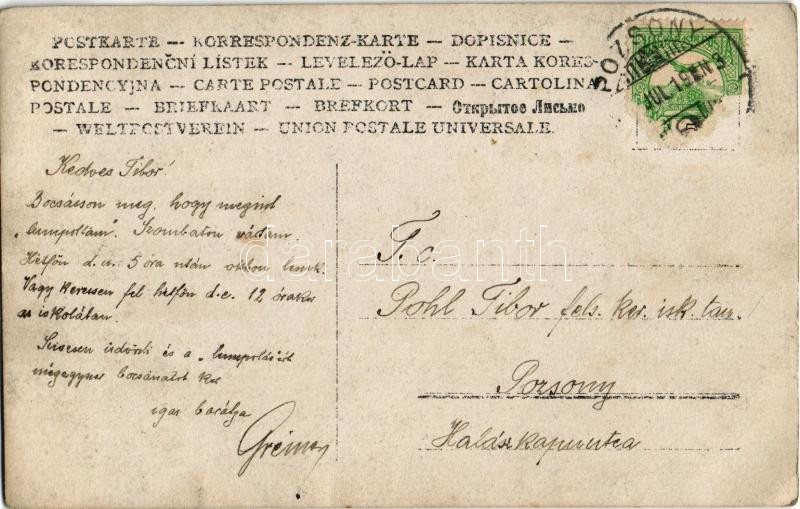 POSTKARTE — KORRESPONDENZ-KARTE — DOPISNICE —
KORESPONDENČNÍ LÍSTEK — LEVELEZŐ-LAP — KARTA KORES-
PONDENCYJNA — CARTE POSTALE — POSTCARD — CARTOLINA
POSTALE — BRIEFKAART — BREFKORT — Открытое Письмо
— WELTPOSTVEREIN — UNION POSTALE UNIVERSALE.
POZSONY
JUL 19
Kedves Tibor!
Bocsásson meg, hogy megint
"lumpoltam". Szombaton vártam.
Hétfőn d. u. 5 óra után otthon leszek.
Vagy keressen fel hétfőn d. e. 12 órakor
az iskolában.
Szivesen üdvözli és a "lumpolásért"
mégegyszer bocsánatot kér
igaz barátja
T. c.
Pohl Tibor fels. ker. isk. tan.
Pozsony
Halászkapuutca
darabanth